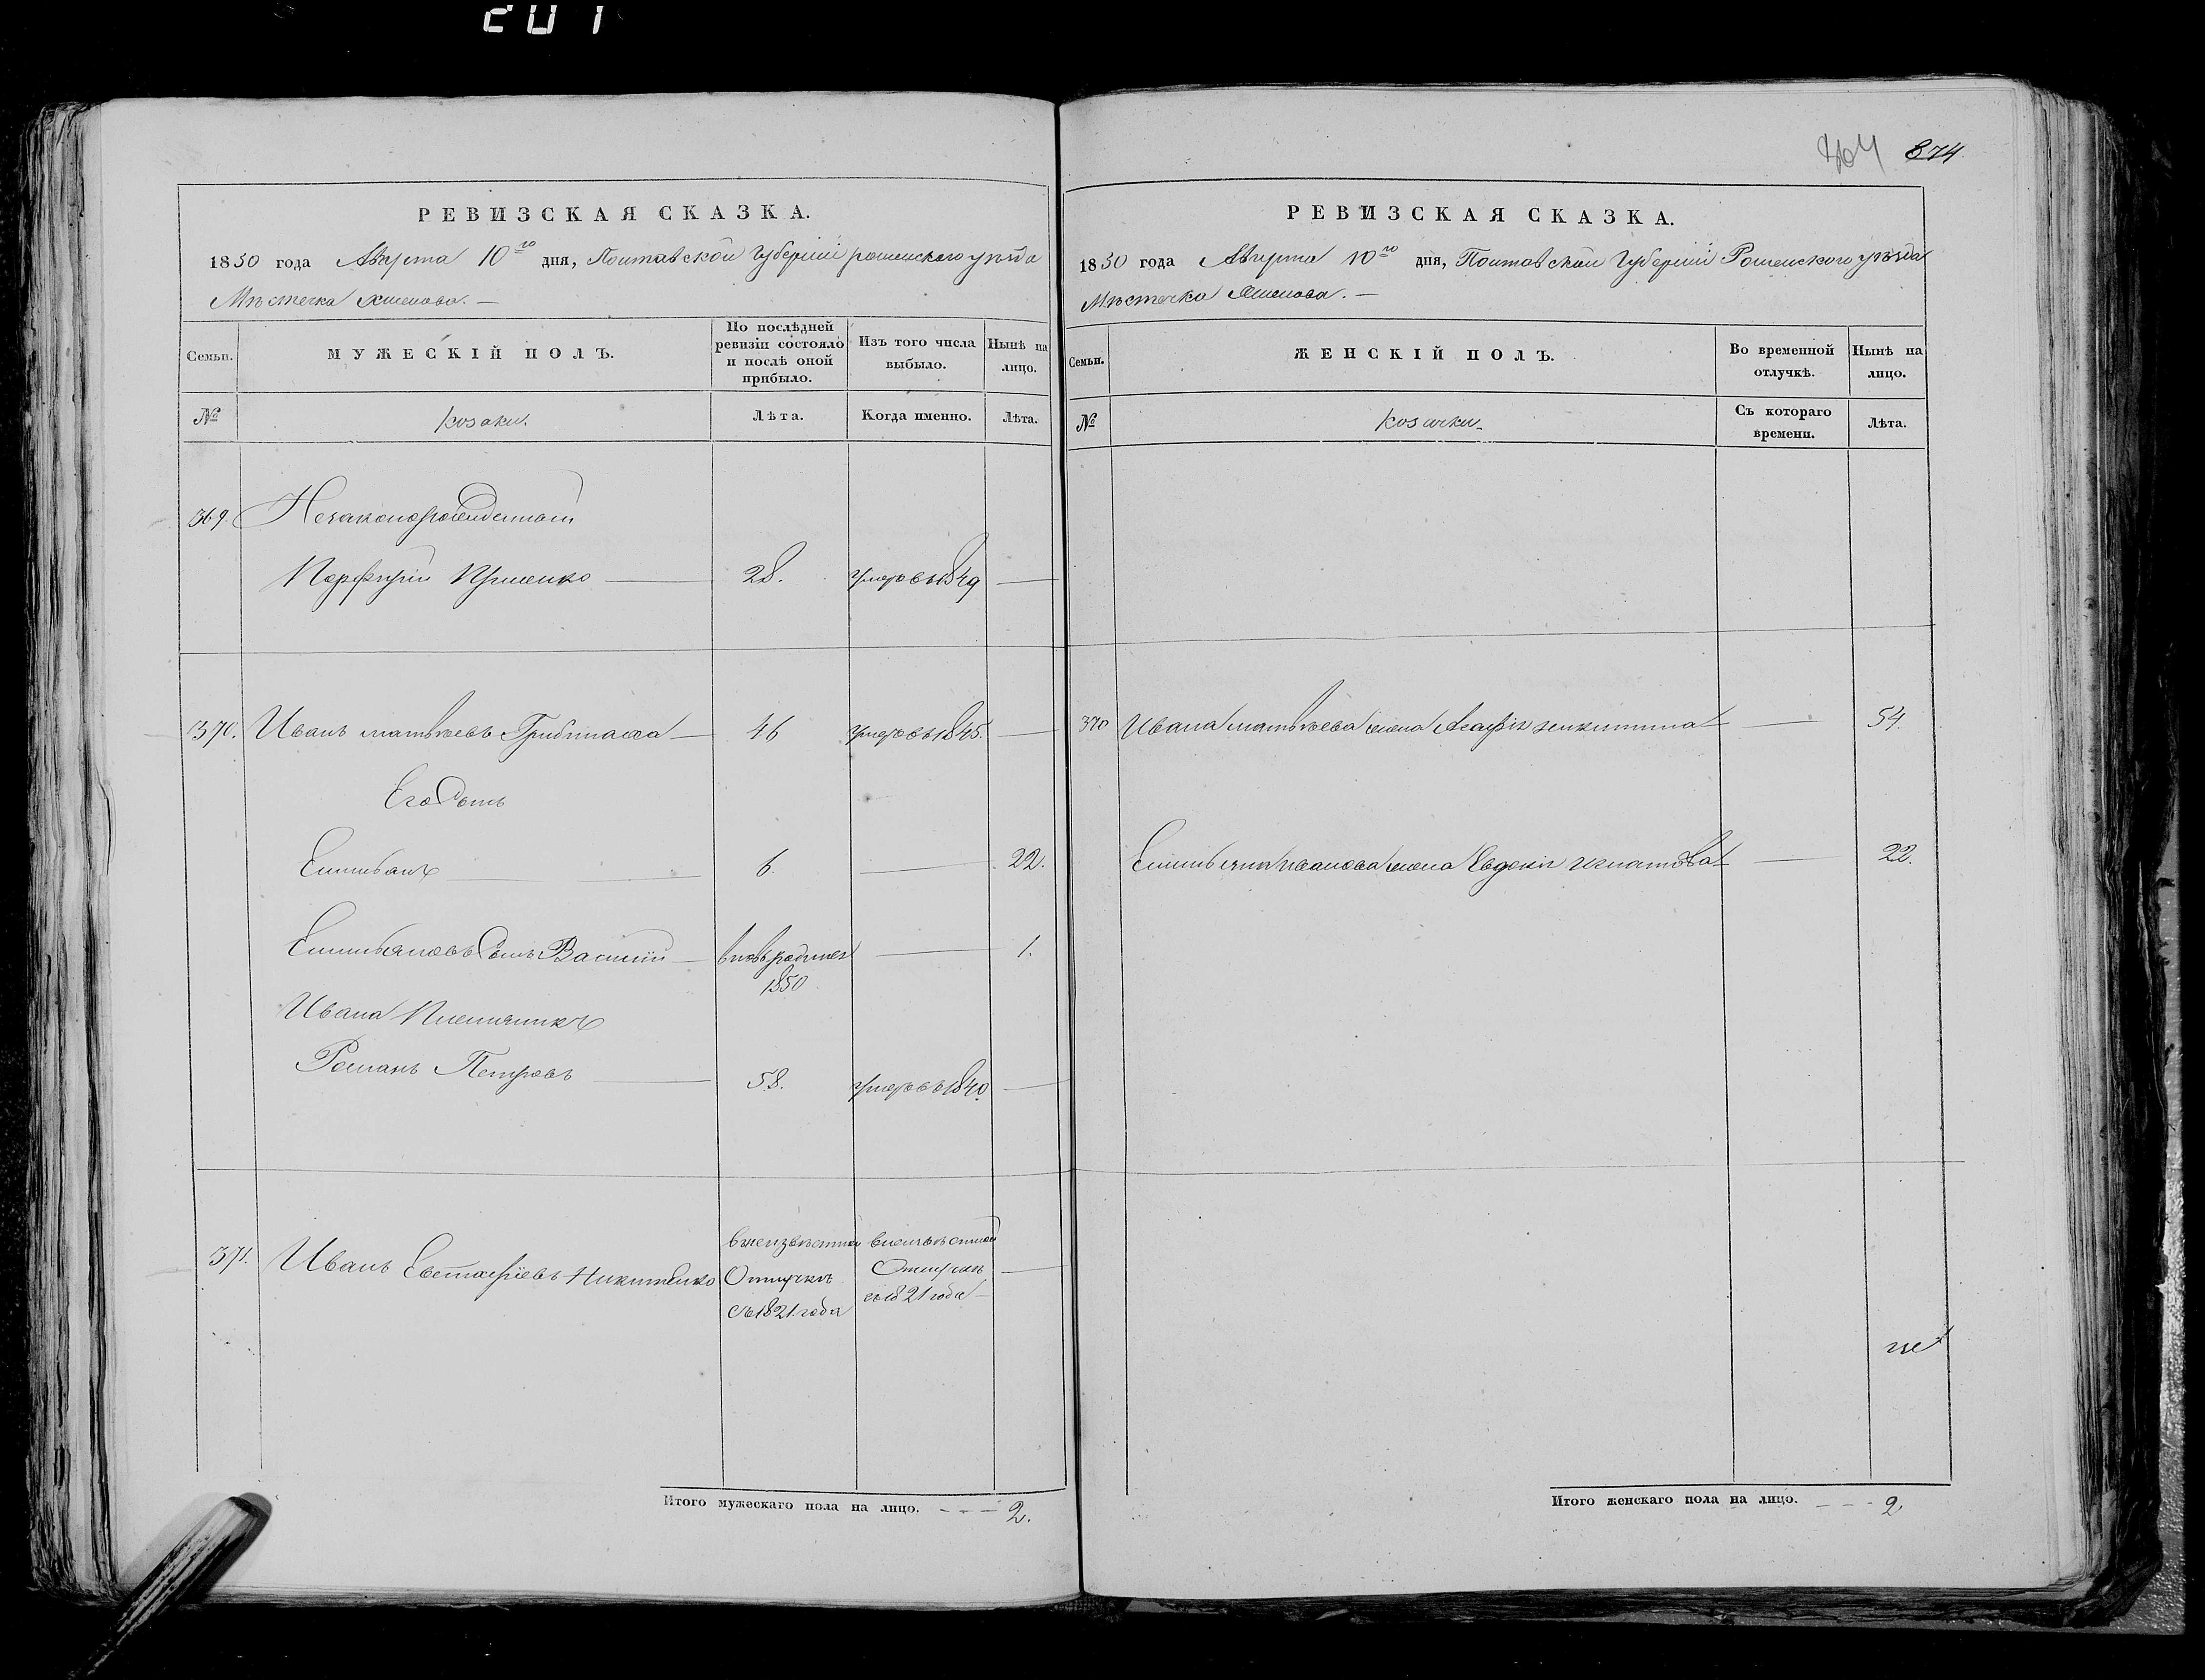 201
764 874
РЕВИЗСКАЯ СКАЗКА.
1850 года Августа 10го дня, Полтавской Губерніи роменскаго уѣзда
Мѣстечка Хмелова. —
Семьи.
МУЖЕСКІЙ ПОЛЪ.
По послѣдней ревизіи состояло и послѣ оной прибыло.
Изъ того числа выбыло.
Нынѣ на лицо.
№
козаки.
Лѣта.
Когда именно.
Лѣта.
369. Незаконорожденный
28. умеръ въ 1849 —
370. Иванъ матвѣевъ — 46 умеръ въ 1845. —
Его Сынъ
Емельянъ — 6. — 22.
Емельяновъ Сынъ Василій — вновьродился — 1.
1850
Ивана Племянникъ
Романъ Петровъ — 58. умеръ въ 1840. —
371. Иванъ Евстафіевъ Никитенко
в неизвѣстной
Отлучкѣ
съ 1821 года
в неизвѣстной
Отлучкѣ
съ 1821 года —
Итого мужескаго пола на лицо. - - - 2.
РЕВИЗСКАЯ СКАЗКА.
1850 года Августа 10го дня, Полтавской Губерніи Роменскаго уѣзда
Мѣстечка Хмелова. —
Семьи.
ЖЕНСКІЙ ПОЛЪ.
Во временной отлучкѣ.
Нынѣ на лицо.
№
козачки.
Съ котораго времени.
Лѣта.
370 Ивана матвѣева жена Агафія никитина — 54.
Емельяна иванова жена Евдокія игнатова — 22.
Итого женскаго пола на лицо. - - - 2.